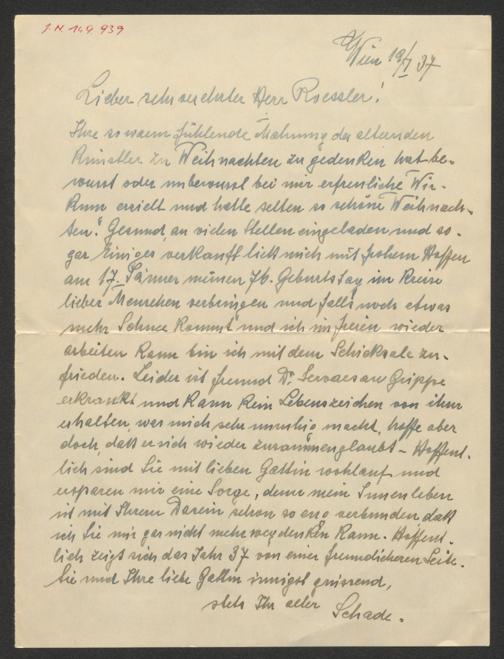 J.N. 149.939
Wien 19/I 37
Lieber sehr verehrter Herr Roessler!
Ihre so warm fühlende Mahnung der alternden
Künstler zu Weihnachten zu gedenken hat be-
wusst oder unbewusst bei mir erfreuliche Wir-
kung erzielt und hatte selten so schöne Weihnach-
ten. Gesund, an vielen Stellen eingeladen und so-
gar Einiges verkauft liess mich mit frohem Hoffen
am 17. Jänner meinen 76. Geburtstag im Kreise
lieber Menschen verbringen und falls noch etwas
mehr Schnee kommt und ich im freien wieder
arbeiten kann bin ich mit dem Schicksale zu-
frieden. Leider ist Freund Dr. Servaes an Grippe
erkrankt und kann kein Lebenszeichen von ihm
erhalten, was mich sehr unruhig macht, hoffe aber
doch, dass er sich wieder – Hoffent-
lich sind Sie mit lieben Gattin wohlauf und
ersparen mir eine Sorge, denn mein Innenleben
ist mit Ihrem Dasein schon so eng verbunden, dass
ich Sie mir gar nicht mehr wegdenken kann. Hoffent-
lich zeigt sich das Jahr 37 von einer freundlicheren Seite.
Sie und Ihre liebe Gattin innigst grüssend,
stets Ihr alter Schade.